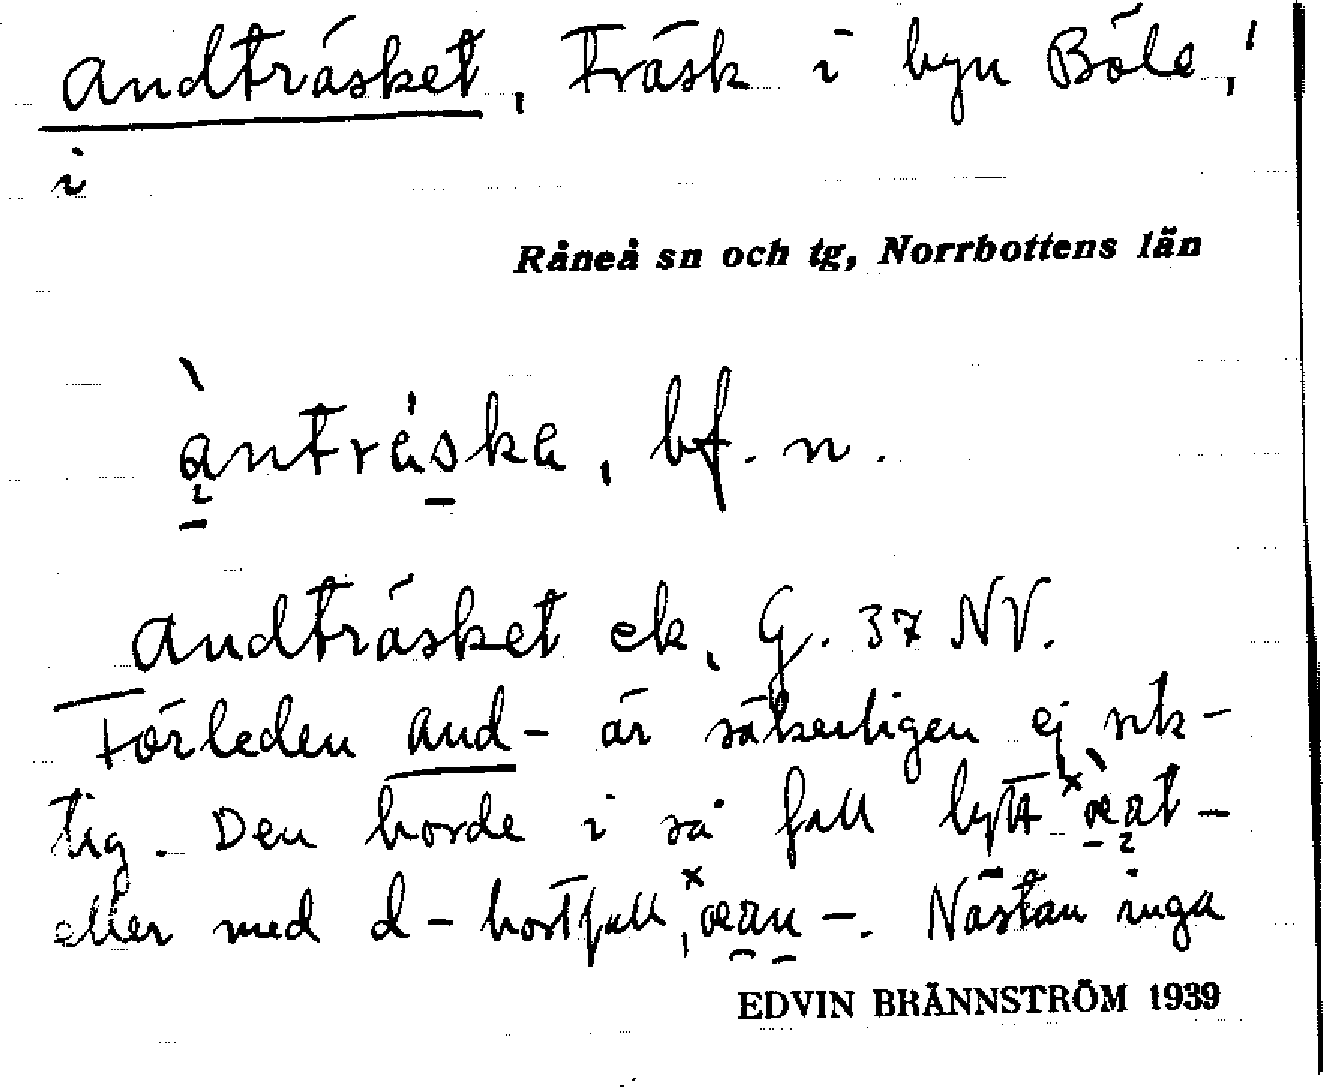 Andträsket, Träsk i byn Böle,
i
Råneå sn och tg, Norrbottens län
àntràska, bf. n.
Andträsket ek, G. 37 NV.
Förleden and- är säkerligen ej rik-
tig. Den borde i så fall lytt
eller med d-bortfall, -. Nästan inga
EDVIN BRÄNNSTRÖM 1939